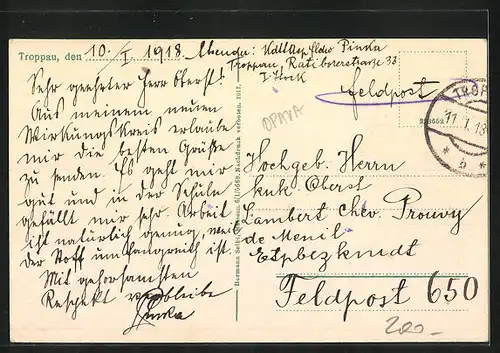 Troppau, den 10./I 1918
Absender: Kdtt Asp. Fldw Pinka
Troppau, Ratiborerstrasse 33
I. Stock
Feldpost
OPAVA
TROP
11. I. 18
* b *
Sehr geehrter Herr Oberst!
Aus meinem neuen
Wirkungskreis erlaube
mir die besten Grüße
zu senden. Es geht mir
gut und in der Schule
gefällt mir sehr. Arbeit
ist natürlich genug, weil
der Stoff umfangreich ist.
Mit gehorsamsten
Respekt verbleibe
Pinka
Hochgeb. Herrn
kuk. Oberst
Lambert Chev. Prouvy
de Menil
Etpbezkmdt
Feldpost 650
200.-
Nachdruck verboten. 1917.